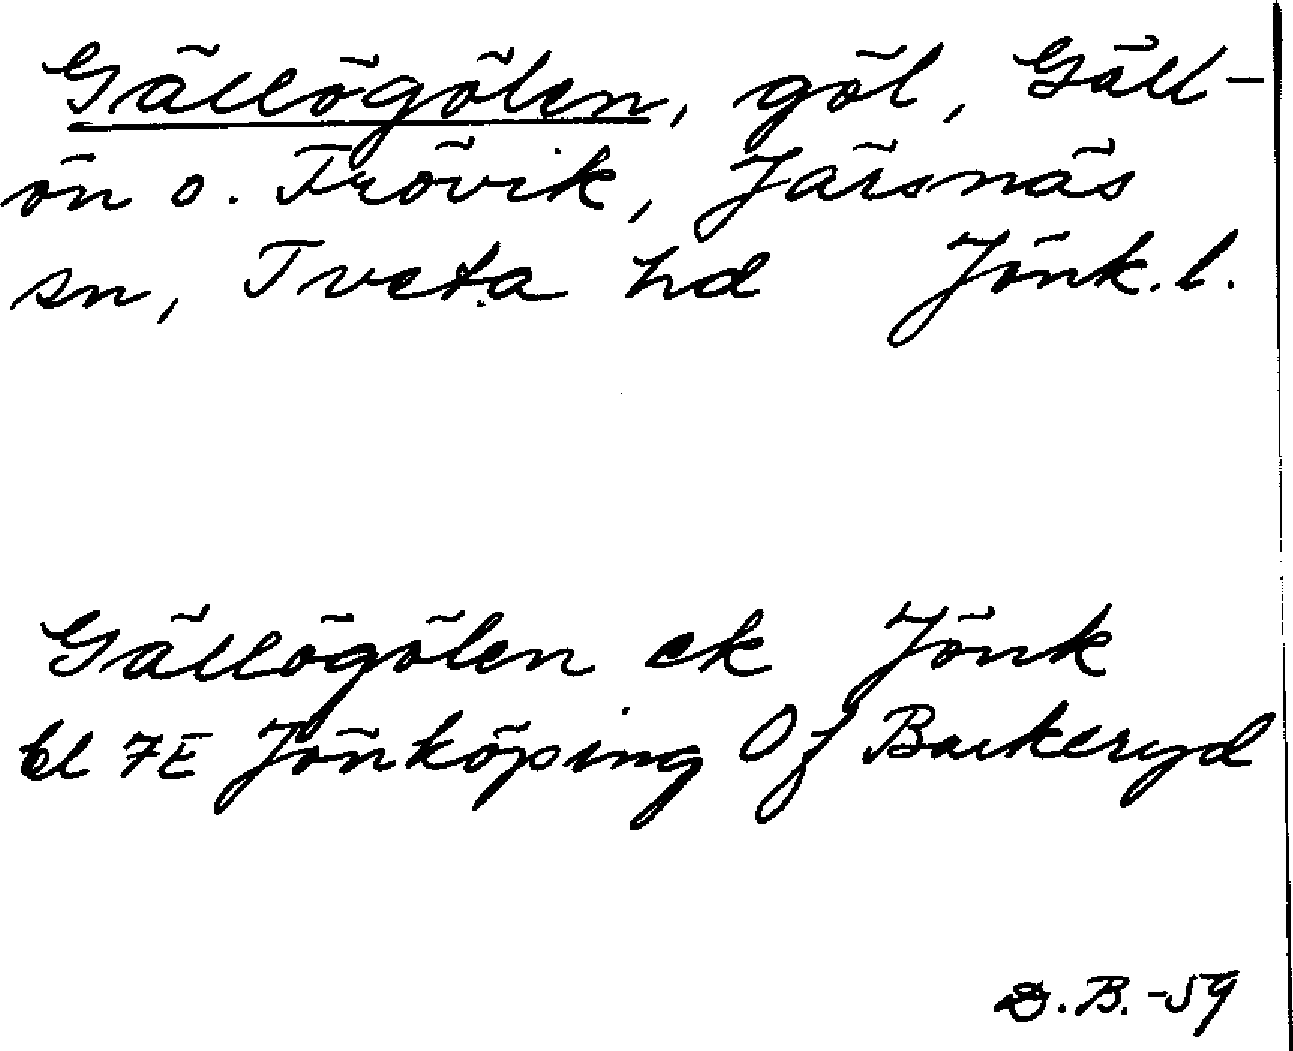 Gällögölen, göl, Gäll-
ön o. Frövik, Järsnäs
sn, Tveta hd Jönk. l.
Gällögölen ek Jönk
bl 7E Jönköping Of Backeryd
B.-59